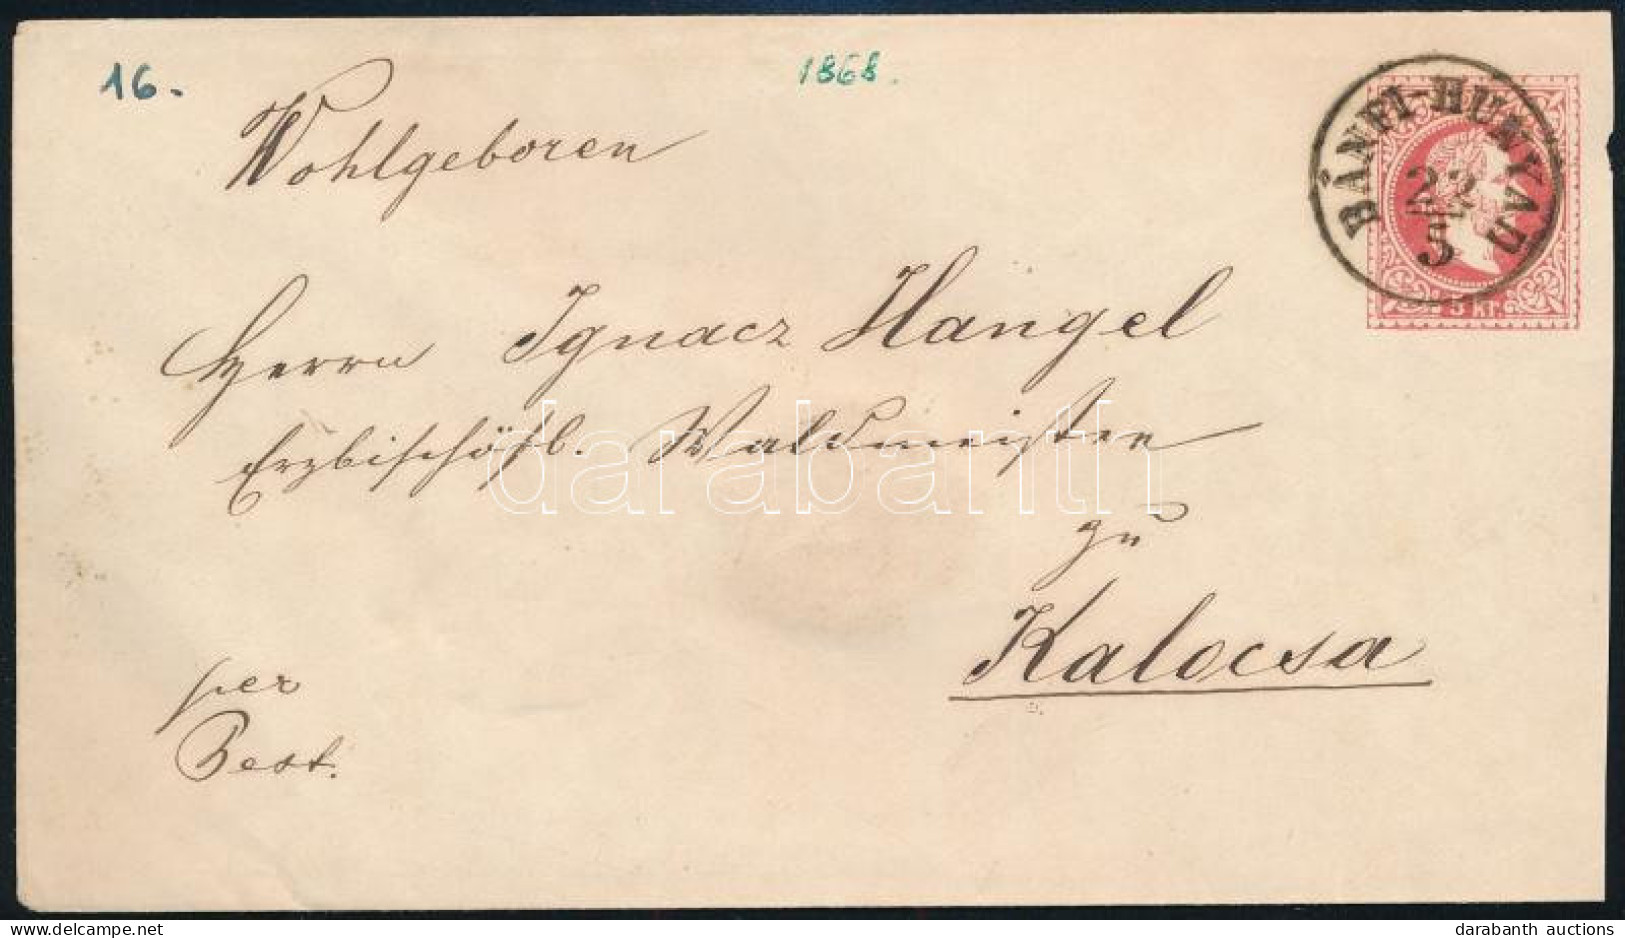 16.
1868.
BÁNFI-HUNYAD
22
5
5 Kr.
Wohlgeboren
Herrn Ignacz Hangel
Erzbischöfl. Waldmeister
zu
Kalocsa
per
Pest.
darabanth
delcampe.net
darabanth auctions